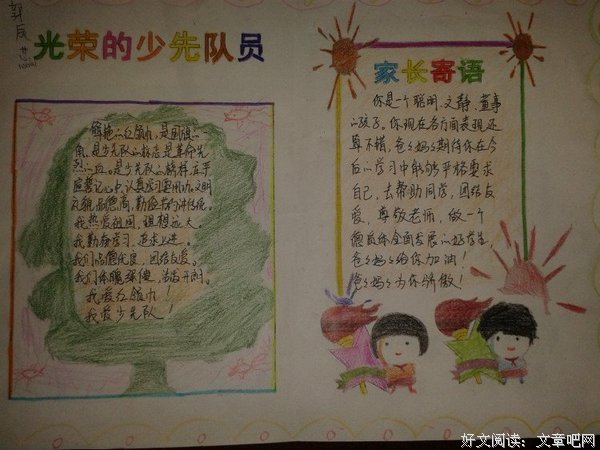 光荣的少先队员
鲜艳的红领巾，是国旗的
角，是少先队的标志是革命先
烈的血。是少先队的榜样庄严
我热爱祖国，理想远大。
我勤奋学习，追求上进。
我们品德优良，团结友爱。
我们体魄强健，活泼开朗。
我爱红领巾
我爱少先队！
家长寄语
你是一个聪明、文静、董事
的孩子。你现在各方面表现还
算不错，爸爸妈妈期待你在今
后的学习中能够严格要求
自己，去帮助同学，团结友
爱，尊敬老师，做一个
德质体全面发展的好学生，
爸爸妈妈给你加油！
爸爸妈妈为你骄傲！
好文阅读：文章吧网